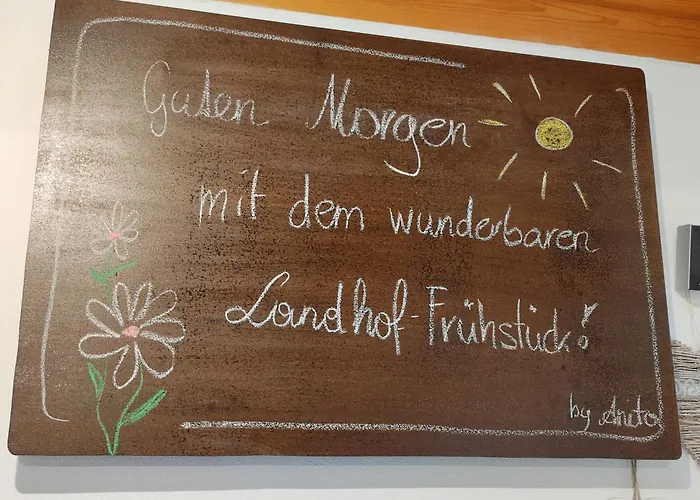 Guten Morgen
mit dem wunderbaren
Landhof-Frühstück!
by Anita